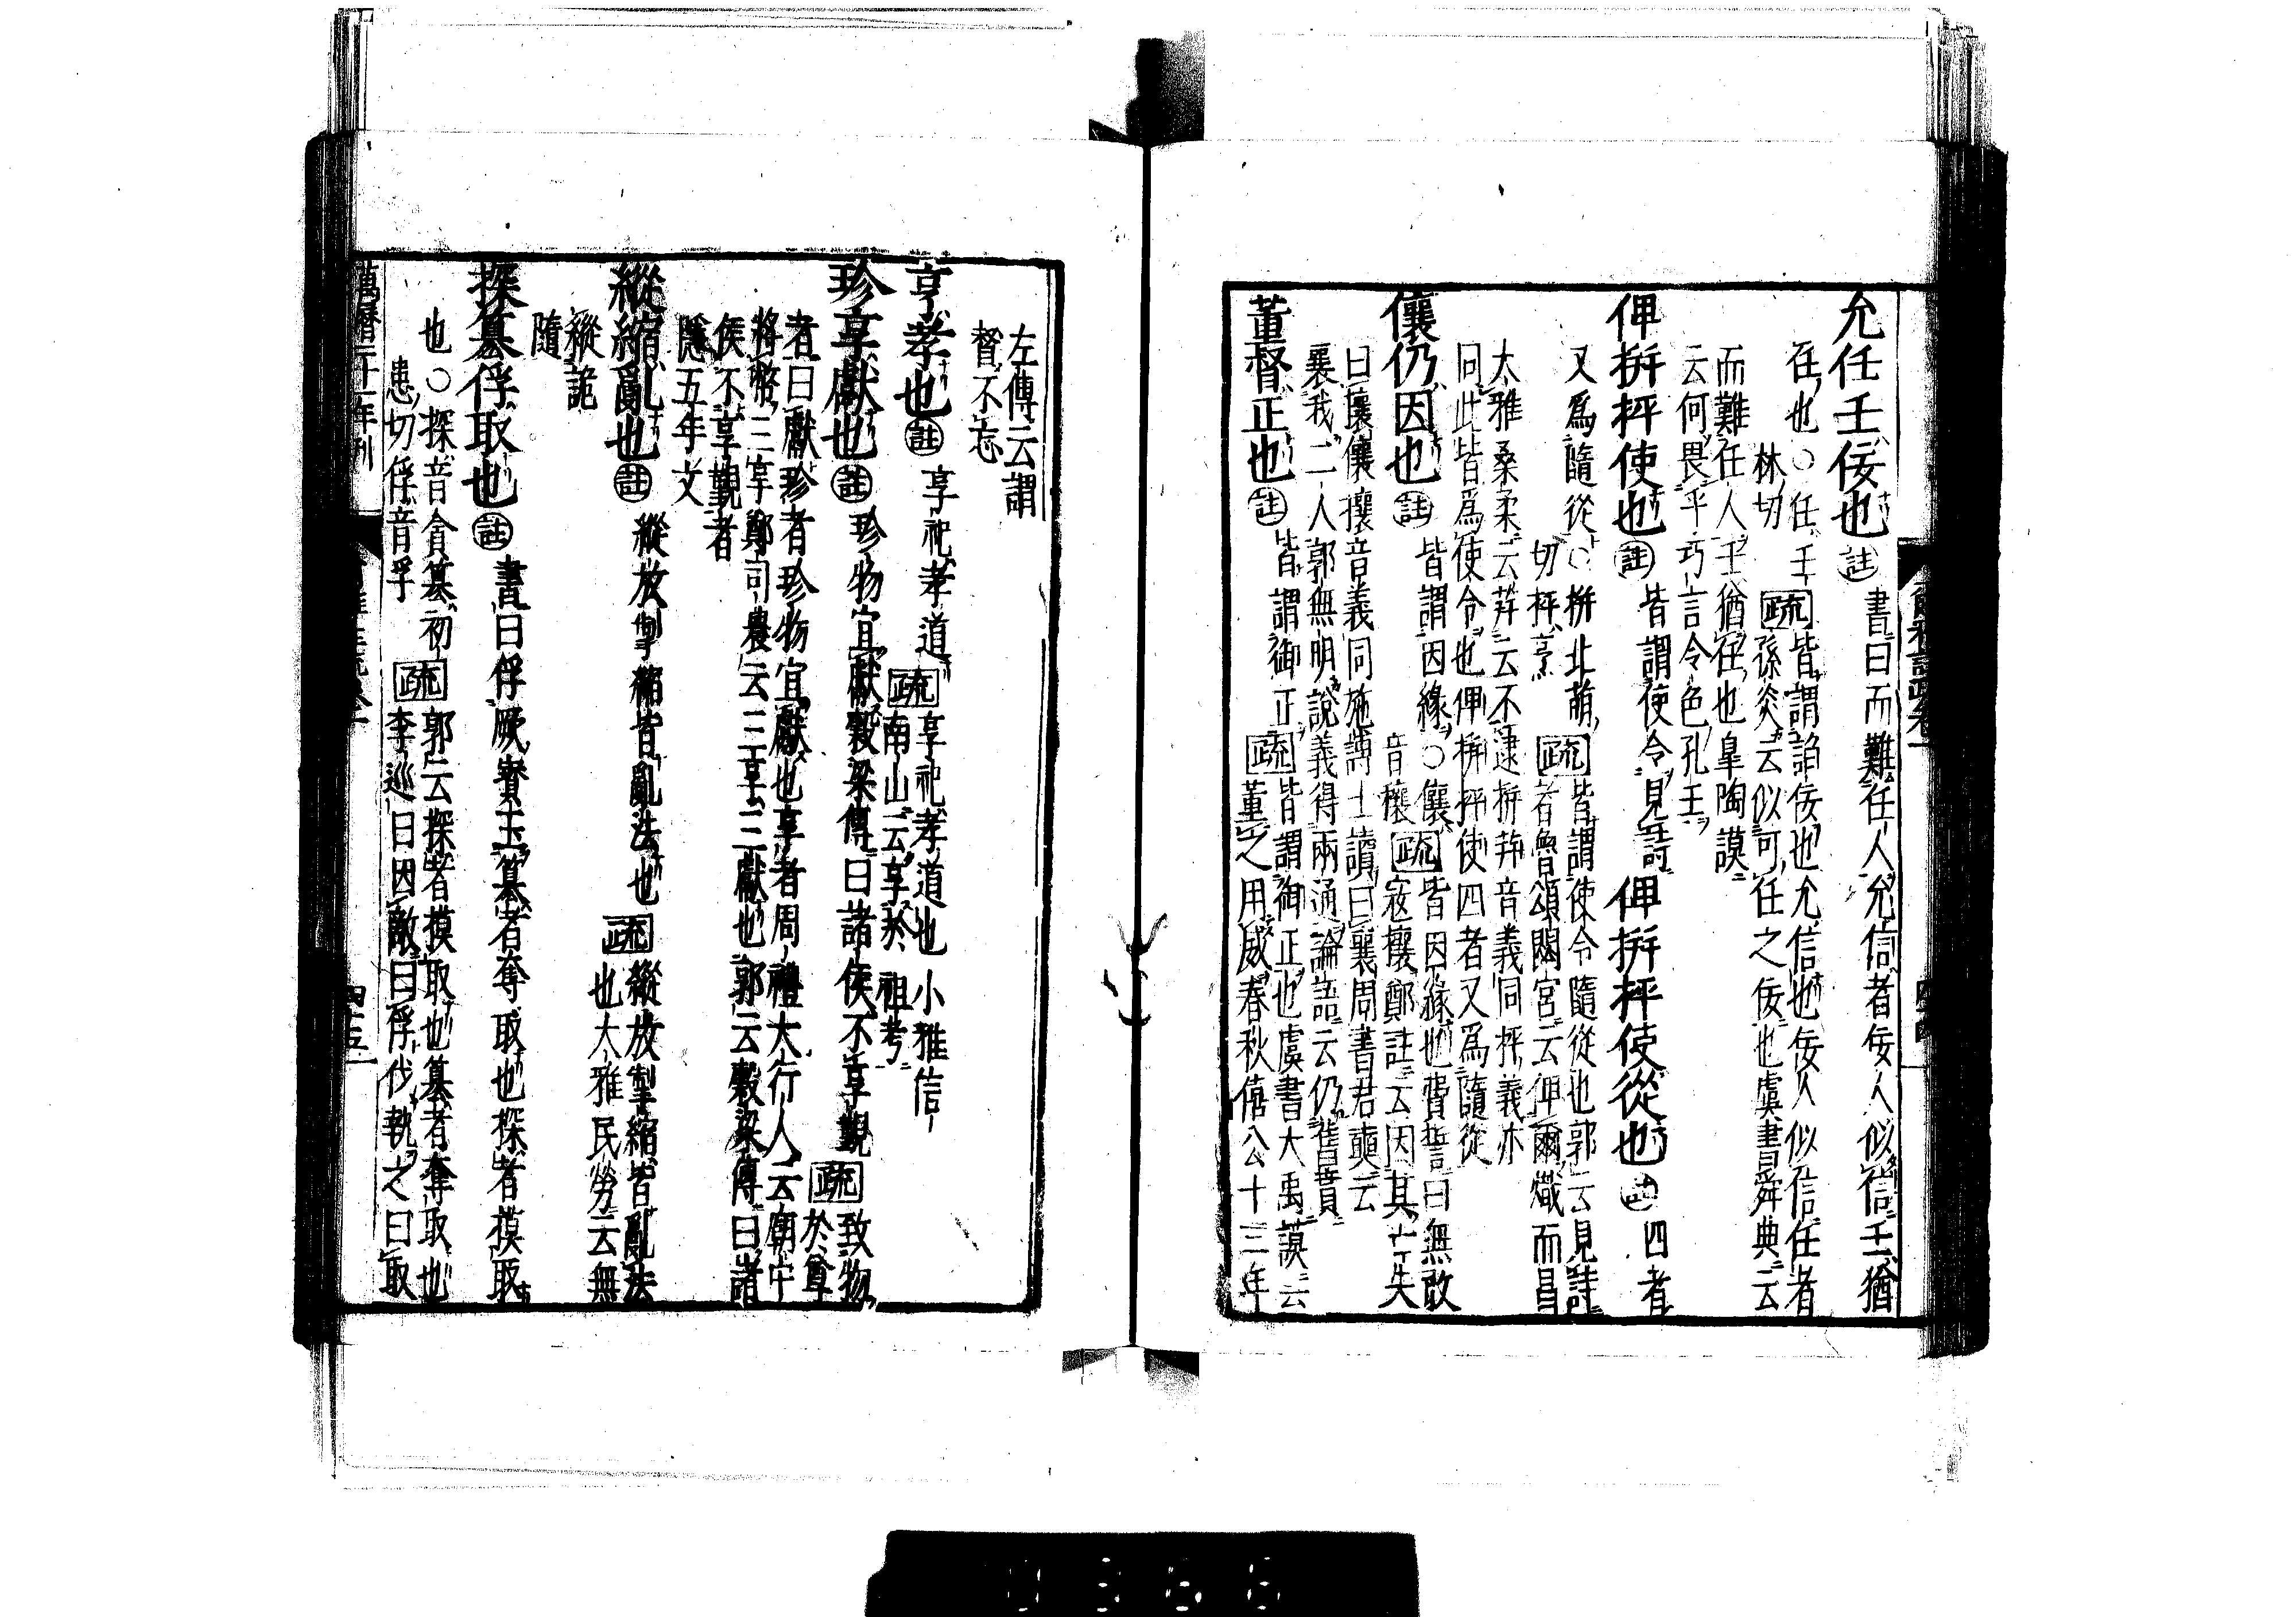 允任壬佞也 註 書曰而難任人允信者佞人似信壬猶
任也○任壬
林切
疏 皆謂諂佞也允信也佞人似信任者
孫炎云似可任之佞也虞書舜典云
而難任人壬猶任也皐陶謨
云何畏乎巧言令色孔壬
俾拼抨使也 註 皆謂使令見詩 俾拼抨使從也 註 四者
又爲隨從○拼北萌
切抨亨
疏 皆謂使令隨從也郭云見詩
者魯頌閟宮云俾爾熾而昌
大雅桑柔云荓云不逮拼荓音義同抨義亦
同此皆爲使令也俾拼抨使四者又爲隨從
儴仍因也 註 皆謂因緣○儴
音穰
疏 皆因緣也費誓曰無敢
寇攘鄭註云因其亡失
曰攘儴攘音義同施博士讀曰襄周書君奭云
襄我二人郭無明說義得兩通論語云仍舊貫
董督正也 註 皆謂御正 疏 皆謂御正也虞書大禹謨云
董之用威春秋僖公十三年
左傳云謂
督不忘
享孝也 註 享祀孝道 疏 享祀孝道也小雅信
南山云享於祖考
珍享獻也 註 珍物宜獻穀梁傳曰諸侯不享覲 疏 致物
於尊
者曰獻珍者珍物宜獻也享者周禮大行人云廟中
將幣三享鄭司農云三享三獻也郭云穀梁傳曰諸
侯不享覲者
隱五年文
縱縮亂也 註 縱放掣縮皆亂法也 疏 縱放掣縮皆亂法
也大雅民勞云無
縱詭
隨
探篡俘取也 註 書曰俘厥寶玉篡者奪取也探者摸取
也○探音貪篡初
患切俘音孚
疏 郭云探者摸取也篡者奪取也
李巡曰因敵曰俘伐執之曰取
萬曆二十一年刊